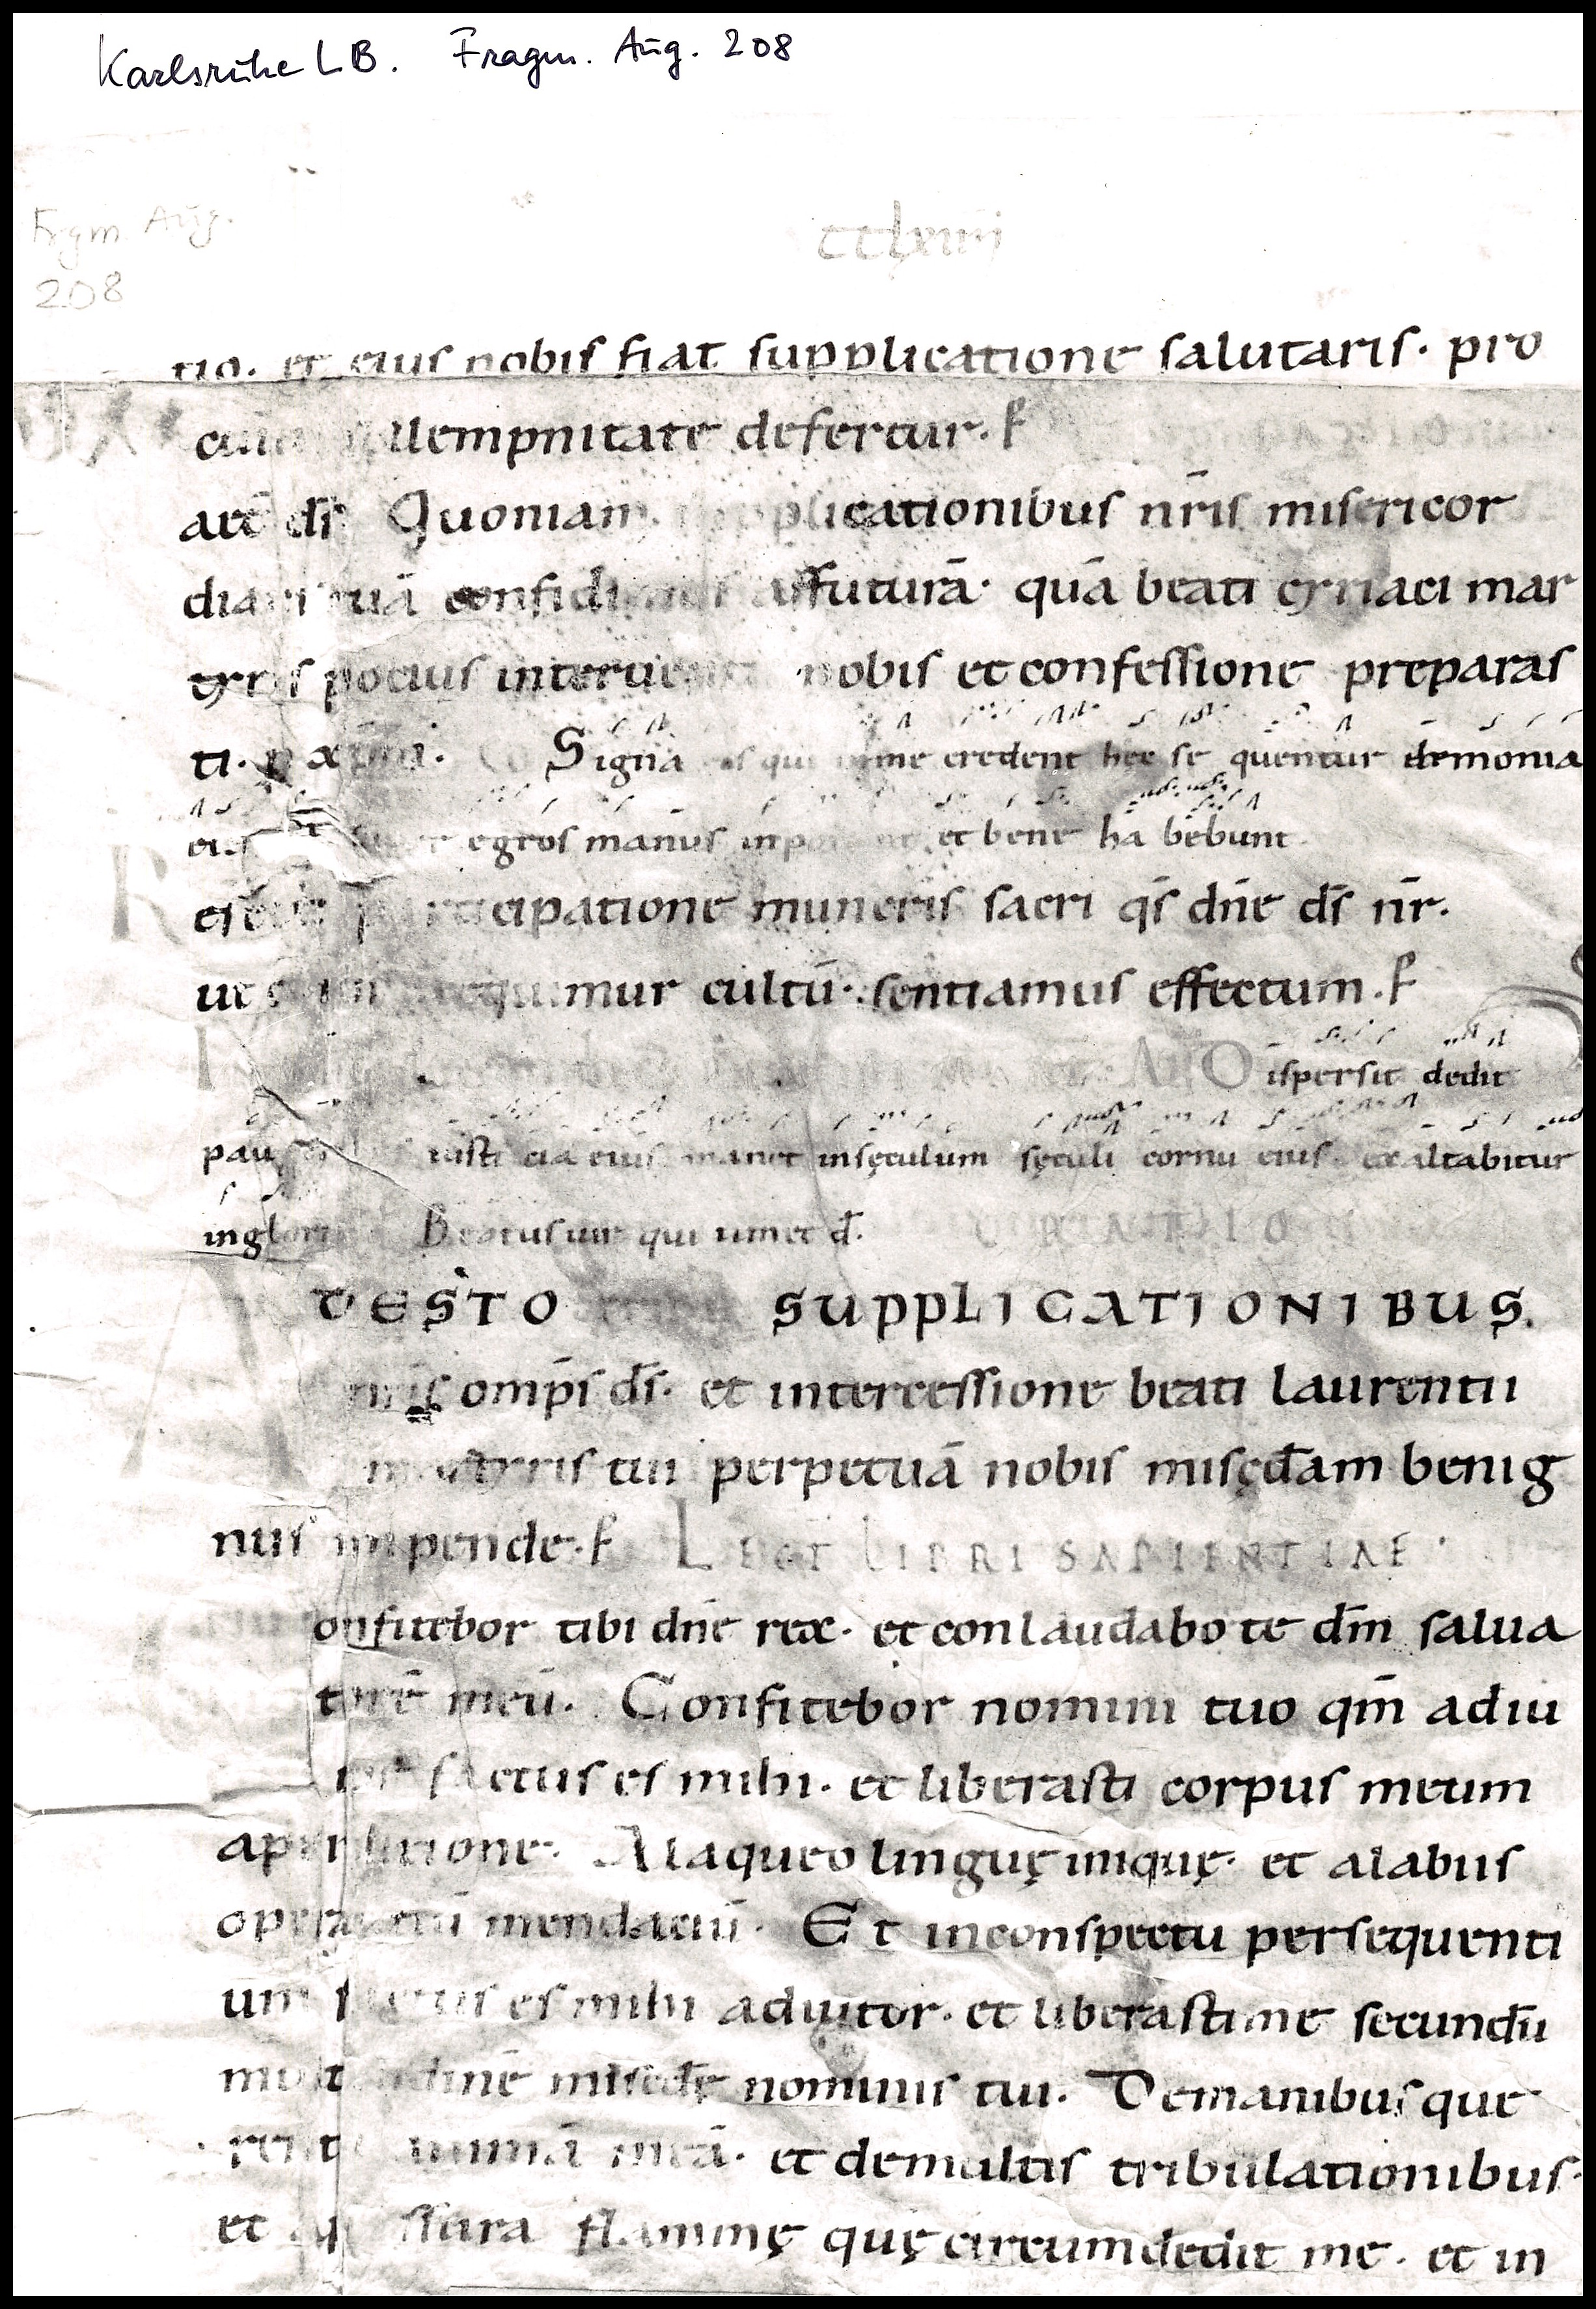 Karlsruhe LB. Fragm. Aug. 208
Frgm. Aug.
208
cclxiiii
tio· et eius nobis fiat supplicatione salutaris· pro
llempnitate defertur·
ds̄ Quoniam cationibus nr̄is misericor
tuā affuturā· quā beati cyriaci mar
tyris pocius nobis et confessione preparas
ti· Signa eos qui in me credent hec se quentur demonia
egros manus inponent et bene ha bebunt
participatione muneris sacri qs̄ dn̄e ds̄ nr̄·
ut exequimur cultū· sentiamus effectum·
Dispersit dedit
iusti cia eius manet insęculum sęculi cornu eius exaltabitur
in gloria Beatus uir qui timet d̄·
DESTO SUPPLICATIONIBUS
nr̄is omp̄s ds̄· et intercessione beati laurentii
martyris tui perpetuā nobis misęd̄am benig
nus impende· LECT LIBRI SAPIENTIAE·
onfitebor tibi dn̄e rex· et conlaudabo te dm̄ salua
torē meū· Confitebor nomini tuo qm̄ adiu
factus es mihi· et liberasti corpus meum
aperditione· Alaqueo linguę iniquę· et alabiis
operantiū mendaciū· Et inconspectu persequenti
um factus es mihi adiutor· et liberasti me secundū
multitudinē nominis tui· Demanibus que
rentiū animā meā· et demultis tribulationibus·
et flammę quę circumdedit me· et in